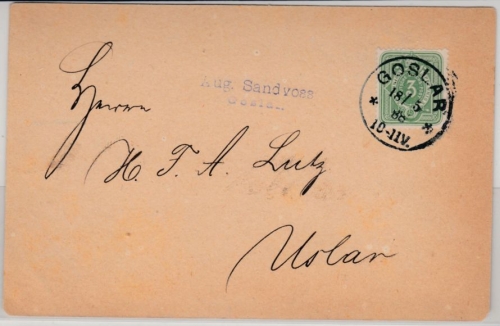 Aug. Sandvoss
Goslar.
GOSLAR
18/5
86
* *
10-11V.
3
Herrn
H. F. A. Lutz
Uslar